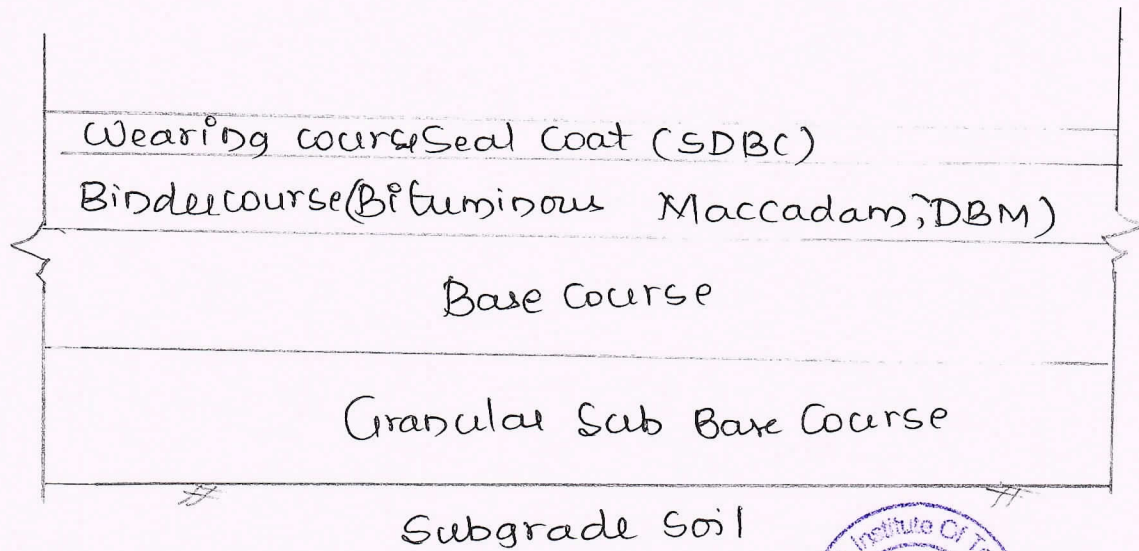 Wearing courseSeal Coat (SDBC)
Bindercourse(Bituminous Maccadam, DBM)
Base Course
Granular Sub Base Course
Subgrade Soil
Institute Of